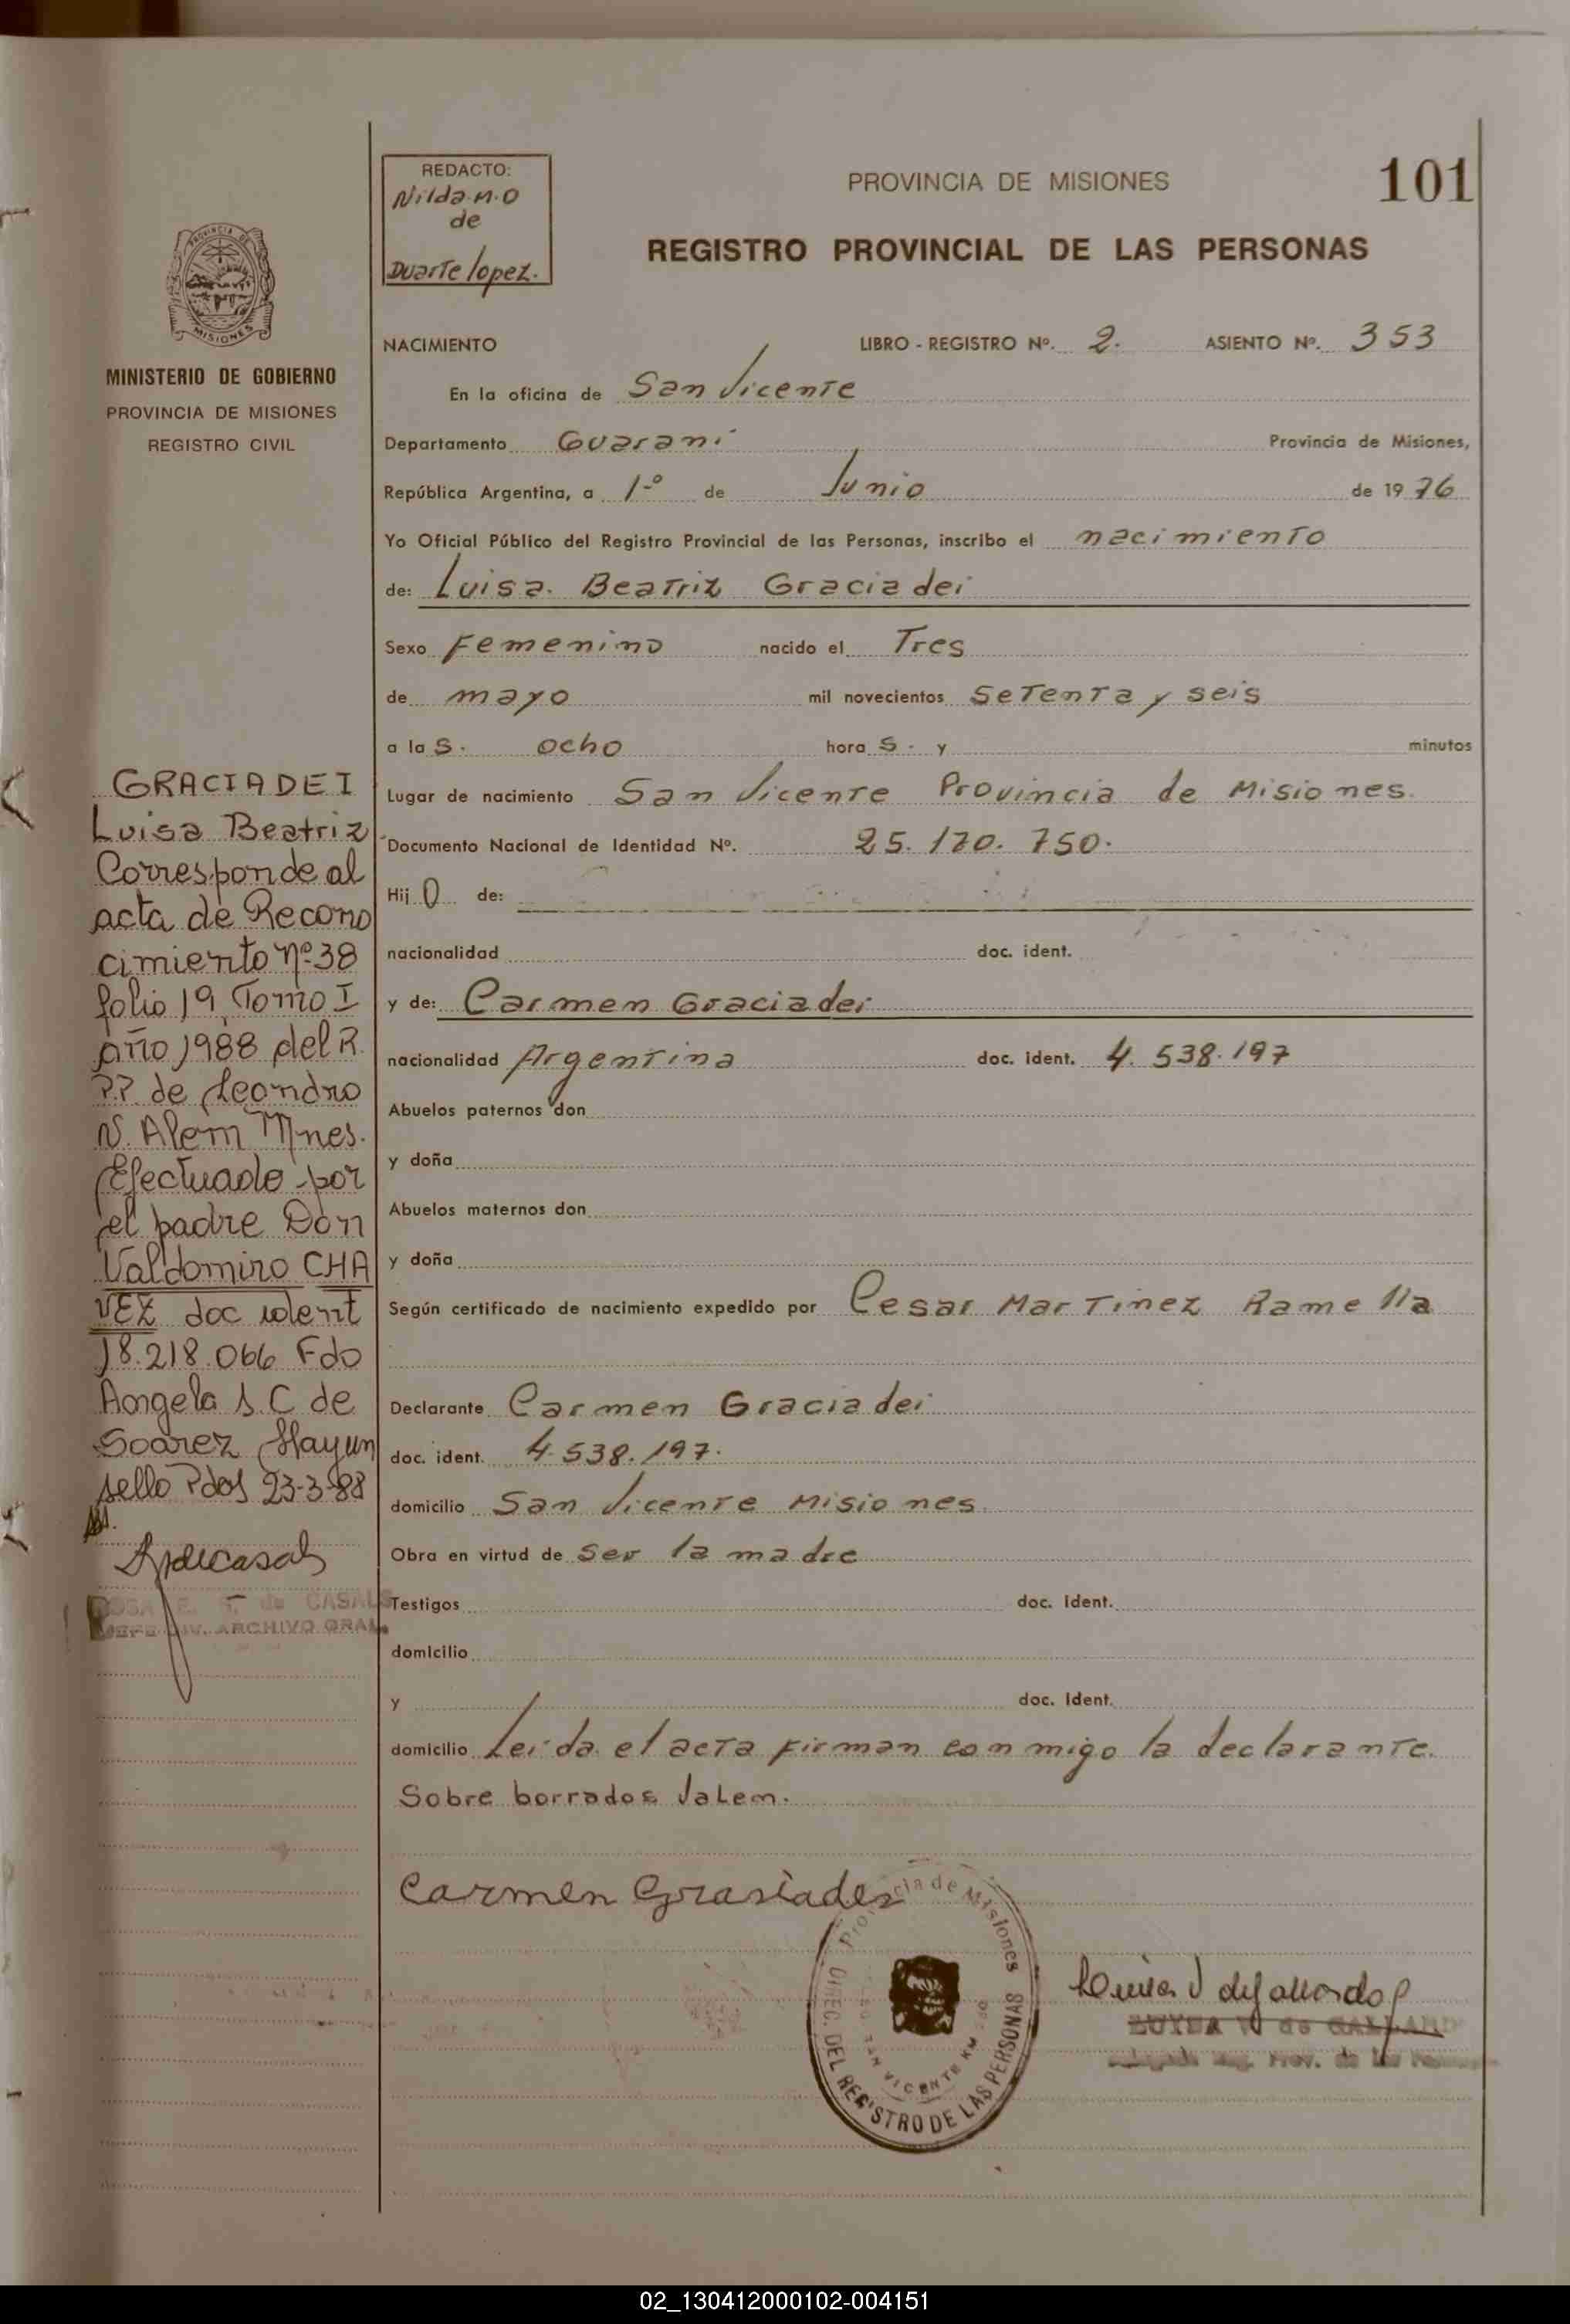 REDACTO:
Nilda M.O
de
Duarte Lopez.
PROVINCIA DE MISIONES
101
REGISTRO PROVINCIAL DE LAS PERSONAS
PROVINCIA DE
MISIONES
MINISTERIO DE GOBIERNO
PROVINCIA DE MISIONES
REGISTRO CIVIL
NACIMIENTO LIBRO - REGISTRO Nº. 2. ASIENTO Nº. 353
En la oficina de San Vicente
Departamento Guaraní Provincia de Misiones,
República Argentina, a 1º de Junio de 1976
Yo Oficial Público del Registro Provincial de las Personas, inscribo el nacimiento
de: Luisa. Beatriz Graciadei
Sexo Femenino nacido el Tres
de mayo mil novecientos setenta y seis
a las. ocho horas. y minutos
Lugar de nacimiento San Vicente Provincia de Misiones.
Documento Nacional de Identidad Nº. 25.170.750.
Hij0 de:
nacionalidad doc. ident.
y de: Carmen Graciadei
nacionalidad Argentina doc. ident. 4.538.197
Abuelos paternos don
y doña
Abuelos maternos don
y doña
Según certificado de nacimiento expedido por Cesar Martinez Ramella
Declarante Carmen Graciadei
doc. ident. 4.538.197.
domicilio San Vicente Misiones.
Obra en virtud de ser la madre
Testigos doc. Ident.
domicilio
y doc. Ident.
domicilio Leída el acta firman conmigo la declarante.
Sobre borrados Valem.
Carmen Grasiadei
Provincia de Misiones
DIREC. DEL REGISTRO DE LAS PERSONAS
SAN VICENTE KM
de GALLARDO
Prov. de las
GRACIADEI
Luisa Beatriz
Corresponde al
acta de Recono
cimiento Nº 38
folio 19, Tomo I
año 1988 del R.
P.P. de Leandro
N. Alem Mnes.
Efectuado por
el padre Don
Valdomiro CHA
VEZ doc ident
18.218.066 Fdo
Angela S. C de
Soarez Hayun
sello Pdos 23-3-88
ROSA E. S. de CASALS
JEFE DIV. ARCHIVO GRAL.
02_130412000102-004151